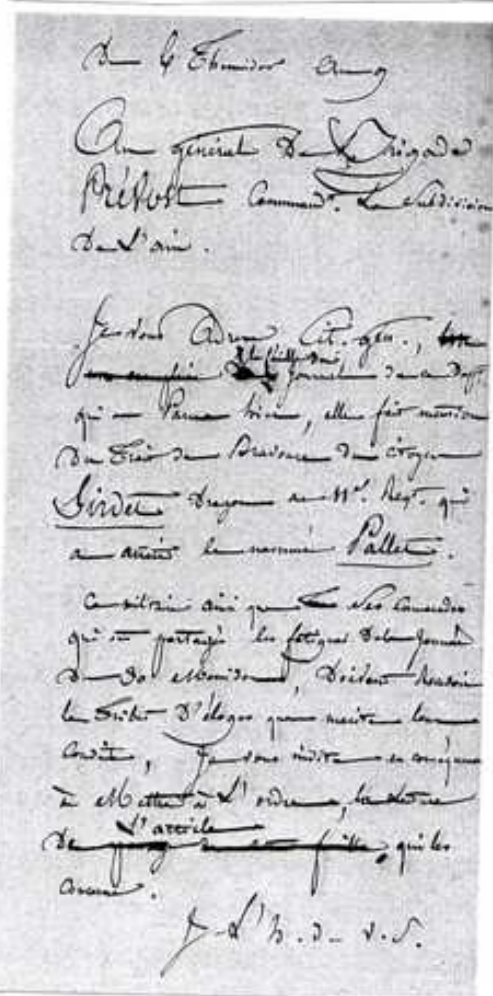 Du 4 Thermidor an 9
Au général De Brigade
Prévost Command.t La Subdivision
De L'ain.
Je vous Adresse Cit. gén.,
la feuille du Journal de ce Dép.t
qui a Parue hier, elle fait mention
Du Trait de Bravoure du citoyen
Girdet Dragon au 11.e Reg.t qui
a arrêté le nommé Pallet.
Ce militaire ainsi que Ses Camarades
qui ont partagés les fatigues De la Journée
Du 30 Messidor, Doivent Recevoir
le Tribut D'éloges que mérite leur
Conduite, Je vous invite en conséquence
à Mettre à L'ordre, la Lecture
De L'article qui les
Concerne.
J. L'h. d. v. S.